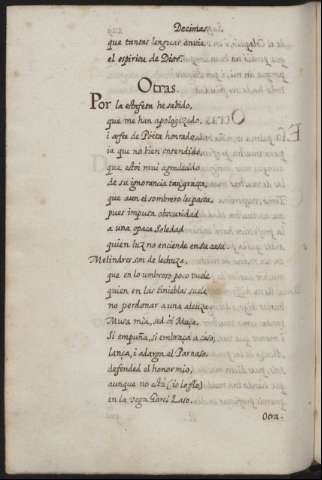 Decimas
que tantas lenguas envia
el espiritu de Dios.
Otras.
Por la estafeta he sabido,
que me han apologizado,
i a fe de Poëta honrado,
ia que no bien entendido,
que estoi mui agradecido
de su ignorancia tan grassa,
que aun el sombrero les passa,
pues imputa obscuridad
a una opaca Soledad
quien luz no enciende en su casa.
Melindres son de lechuza,
que en lo umbroso poco vuele
quien en las tinieblas suele
no perdonar a una alcuza.
Musa mia, sed oi Muza,
Si empuña, si embraza a caso,
lança, i adarga el Parnaso,
defended el honor mio,
aunque no està (io lo fio)
en la vega Garci Laso.
Otra.